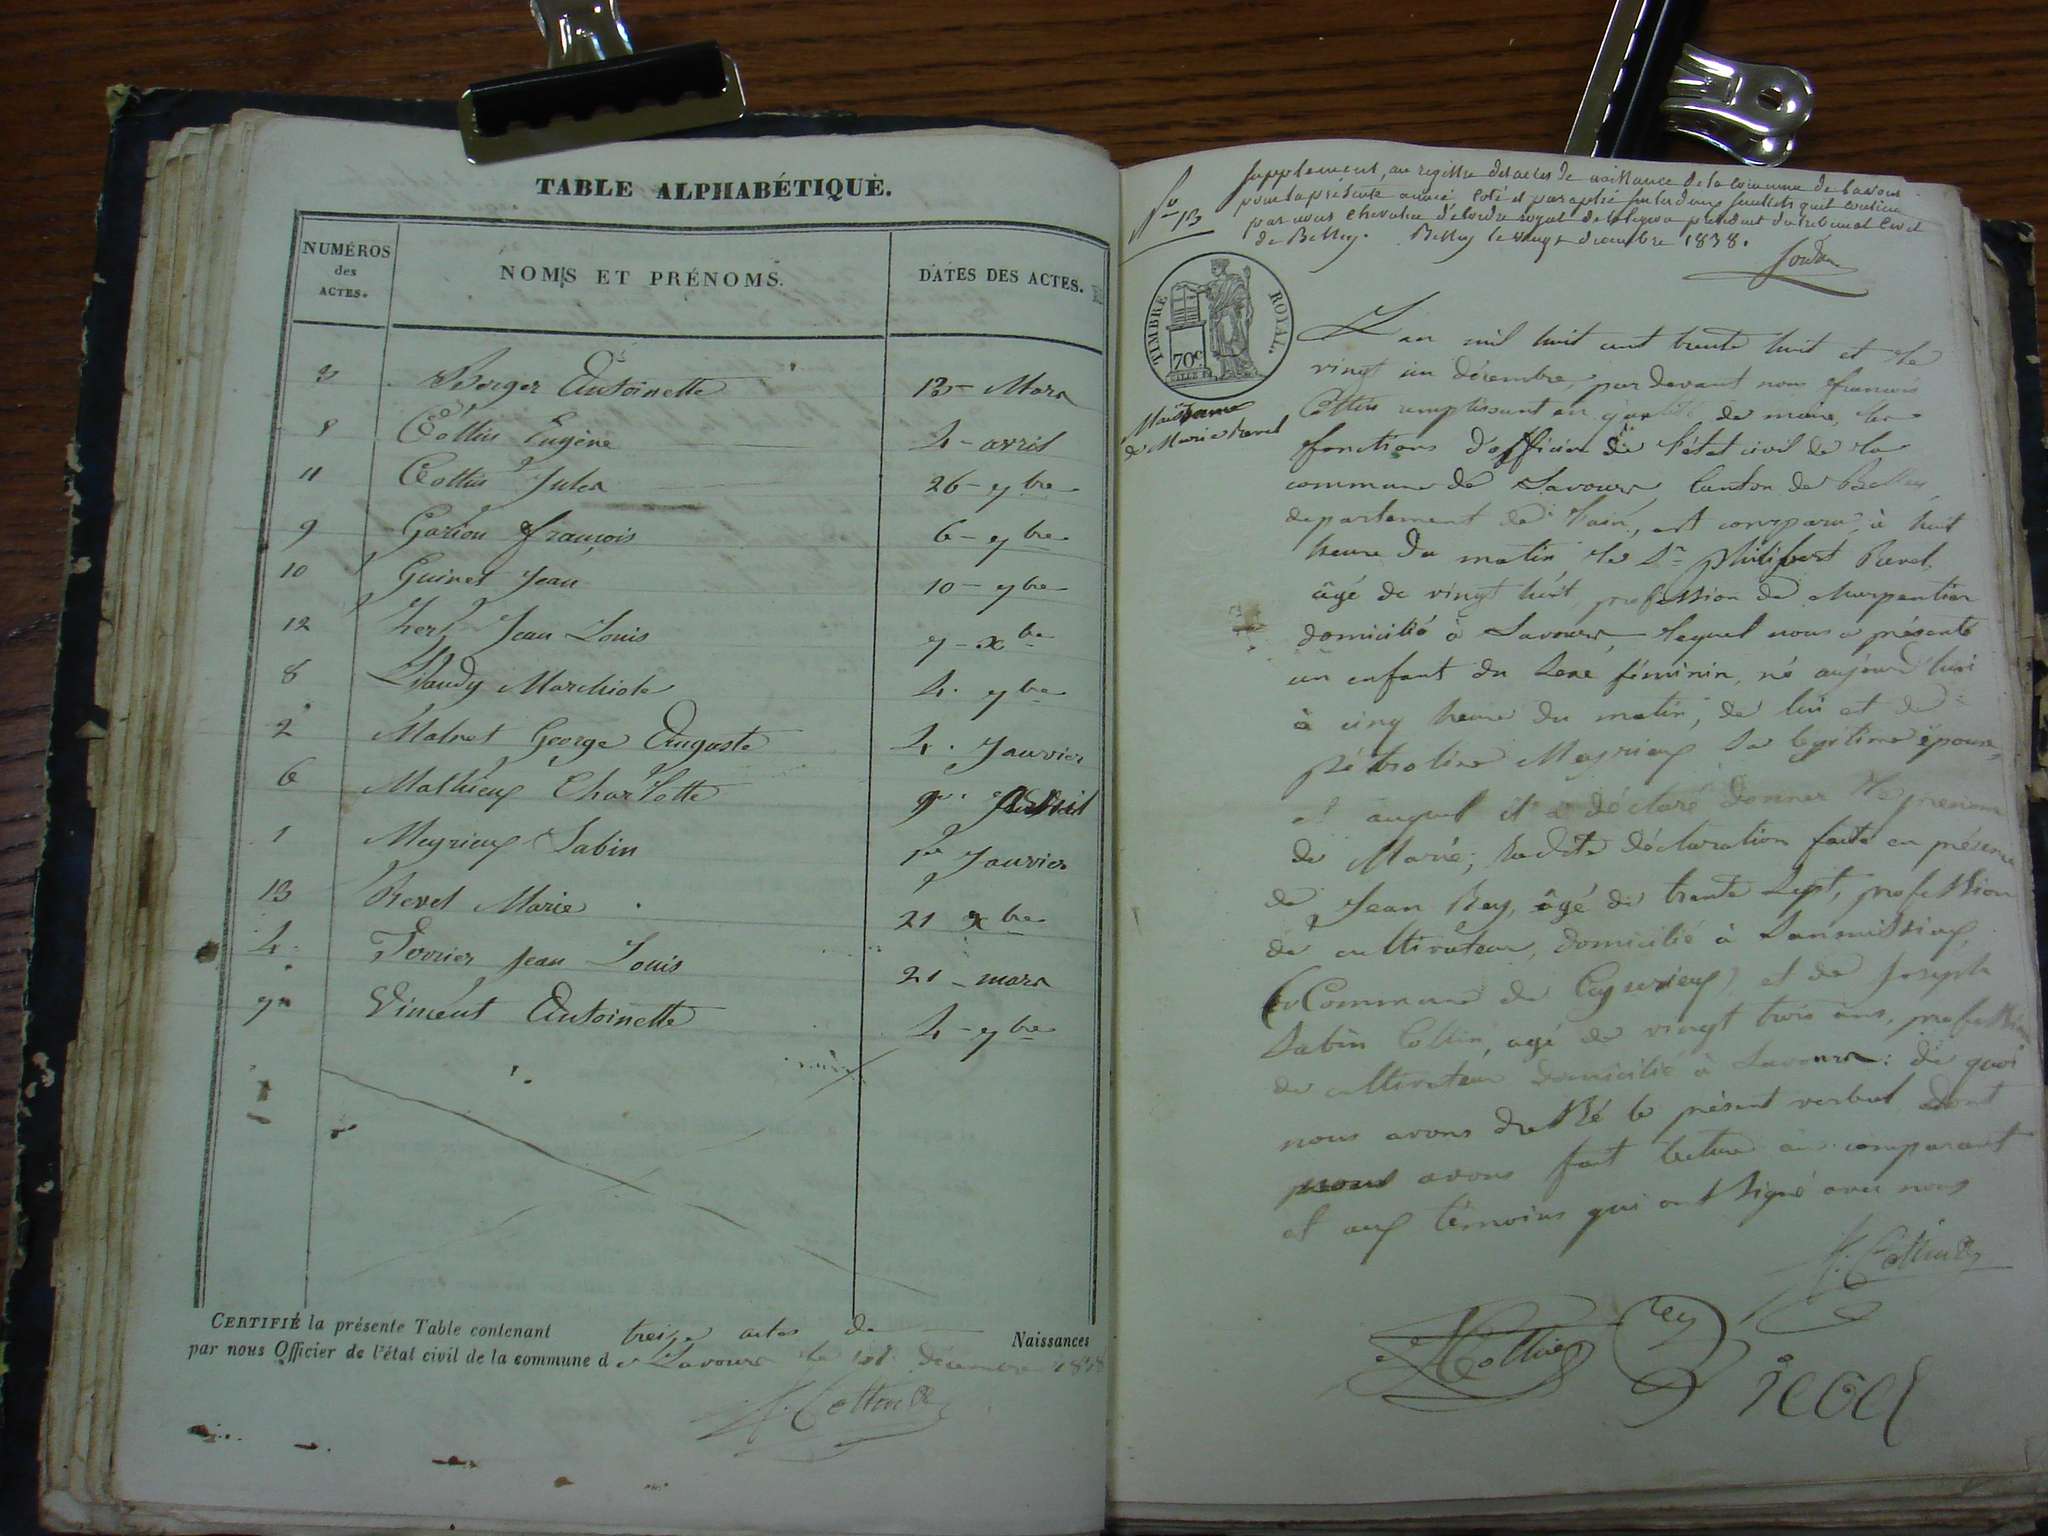 TABLE ALPHABÉTIQUE.
NUMÉROS des ACTES.
NOMS ET PRÉNOMS.
DATES DES ACTES.
3 Berger Antoinette 13 - Mars
5 Cottin Eugène 4 - avril
11 Cottin Jules 26 - 7bre
9 François 6 - 7bre
10 Guinet Jean 10 - 7bre
12 Jean Louis 7 - xbre
8 4 - 7bre
2 George Auguste 4. Janvier
6 Mathieux Charlotte Avril
1 Meyrieux Sabin 1er Janvier
13 Revel Marie 21 xbre
4 Jean Louis 21 - mars
7 Vincent Antoinette 4 - 7bre
CERTIFIÉ la présente Table contenant treize actes de Naissances
par nous Officier de l'état civil de la commune de Lavours le 31 décembre 1838
Supplement, au registre des actes de naissance de la commune de Lavours
pour la présente année Coté et paraphé
par nous chevalier de l'ordre royal de la légion président du tribunal Civil
de Belley. Belley le vingt decembre 1838.
No 13
TIMBRE ROYAL.
70c
Naissance
de Marie Revel
L'an mil huit cent trente huit et le
vingt un décembre, par devant nous françois
Cottin remplissant en qualité de maire, les
fonctions d'officier de l'état civil de la
commune de Lavours, Canton de Belley,
département de l'ain, est comparu, à huit
heure du matin, le Sr philibert Revel,
âgé de vingt huit, profession de charpentier
domicilié à Lavours, lequel nous a présenté
un enfant du Sexe féminin, né aujourd'hui
à cinq heure du matin, de lui et de
pétroline Meyrieux Sa légitime épouse,
et auquel il a déclaré donner le prénom
de Marie; ladite déclaration faite en présence
de Jean Rey, âgé de trente Sept, profession
de cultivateur, domicilié à
(Commune de Ceyzerieux) et de Joseph
Sabin Cottin, agé de vingt trois ans, profession
de cultivateur domicilié à Lavours: de quoi
nous avons dressé le présent verbal dont
nous avons fait lecture au comparant
et aux témoins qui ont Signé avec nous
F. Cottin
Cottin Rey
revel